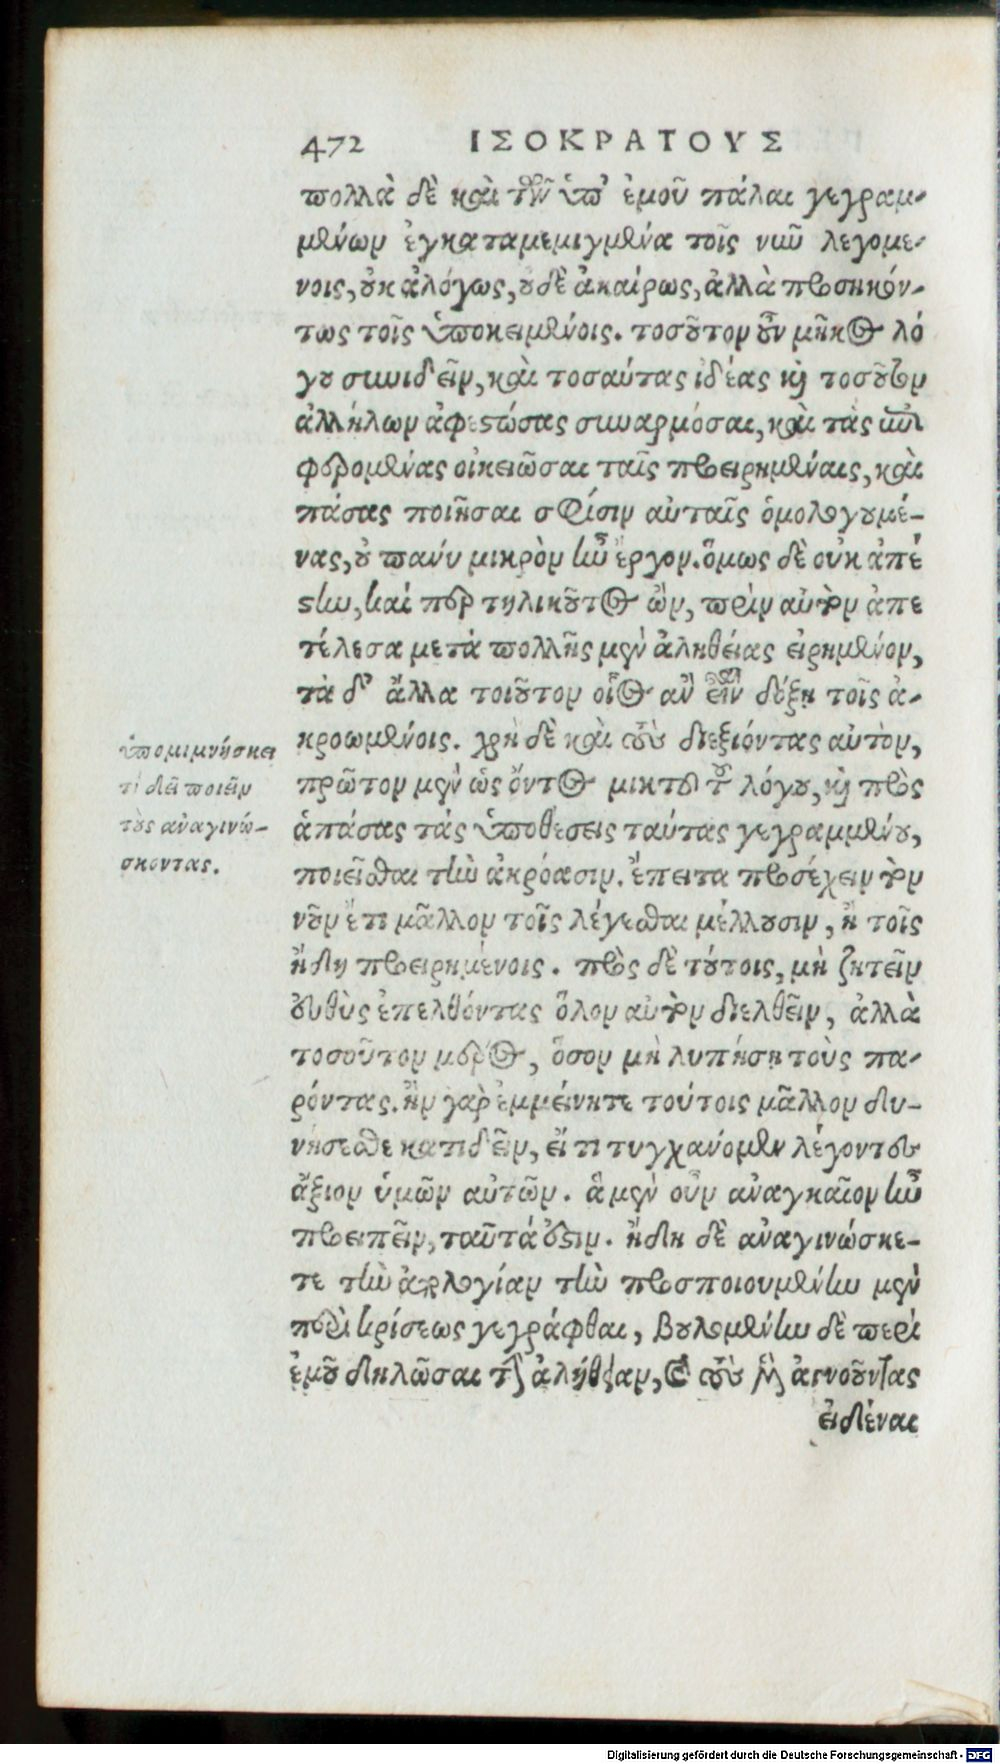 472 ΙΣΟΚΡΑΤΟΥΣ
πολλὰ δὲ καὶ τῶν ὑπ' ἐμοῦ πάλαι γεγραμ-
μένων ἐγκαταμεμιγμένα τοῖς νῦν λεγομέ-
νοις, οὐκ ἀλόγως, οὐδὲ ἀκαίρως, ἀλλὰ προσηκόν-
τως τοῖς ὑποκειμένοις. τοσοῦτον οὖν μῆκος λό
γου συνιδεῖν, καὶ τοσαύτας ἰδέας καὶ τοσοῦτον
ἀλλήλων ἀφεστώσας συναρμόσαι, καὶ τὰς ἐπι
φερομένας οἰκειῶσαι ταῖς προειρημέναις, καὶ
πάσας ποιῆσαι σφίσιν αὐταῖς ὁμολογουμέ-
νας, οὐ πάνυ μικρὸν ἦν ἔργον. ὅμως δὲ οὐκ ἀπέ
στην, καί περ τηλικοῦτος ὢν, πρὶν αὐτὸν ἀπε
τέλεσα μετὰ πολλῆς μὲν ἀληθείας εἰρημένον,
τὰ δ' ἄλλα τοιοῦτον οἷος ἂν εἶναι δόξῃ τοῖς ἀ-
κροωμένοις. χρὴ δὲ καὶ τοὺς διεξιόντας αὐτὸν,
πρῶτον μὲν ὡς ὄντος μικτοῦ τοῦ λόγου, καὶ πρὸς
ἁπάσας τὰς ὑποθέσεις ταύτας γεγραμμένου,
ποιεῖσθαι τὴν ἀκρόασιν. ἔπειτα προσέχειν τὸν
νοῦν ἔτι μᾶλλον τοῖς λέγεσθαι μέλλουσιν, ἢ τοῖς
ἤδη προειρημένοις. πρὸς δὲ τούτοις, μὴ ζητεῖν
εὐθὺς ἐπελθόντας ὅλον αὐτὸν διελθεῖν, ἀλλὰ
τοσοῦτον μέρος, ὅσον μὴ λυπήσῃ τοὺς πα-
ρόντας. ἢν γὰρ ἐμμείνητε τούτοις μᾶλλον δυ-
νήσεσθε κατιδεῖν, εἴ τι τυγχάνομεν λέγοντες
ἄξιον ὑμῶν αὐτῶν. ἃ μὲν οὖν ἀναγκαῖον ἦν
προειπεῖν, ταῦτά ἐστιν. ἤδη δὲ ἀναγινώσκε-
τε τὴν ἀπολογίαν τὴν προσποιουμένην μὲν
περὶ κρίσεως γεγράφθαι, βουλομένην δὲ περὶ
ἐμοῦ δηλῶσαι τὴν ἀλήθειαν, καὶ τοὺς μὲν ἀγνοοῦντας
εἰδέναι
ὑπομιμνήσκει
τί δεῖ ποιεῖν
τοὺς ἀναγινώ-
σκοντας.
Digitalisierung gefördert durch die Deutsche Forschungsgemeinschaft - DFG